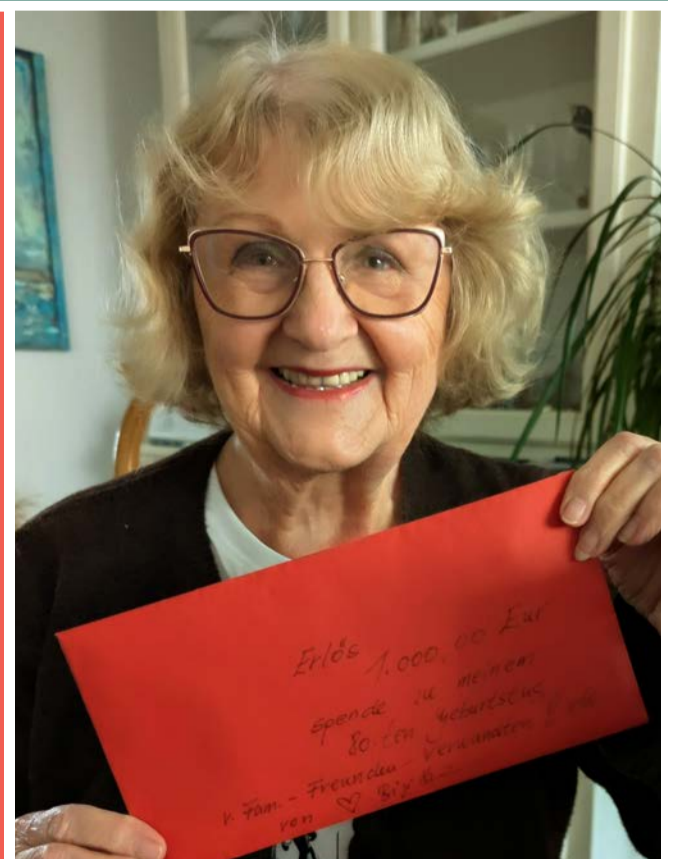 Erlös 1.000,00 Eur
spende zu meinem
80-ten Geburtstag
v. Fam.- Freunden- Verwandten
von ♡